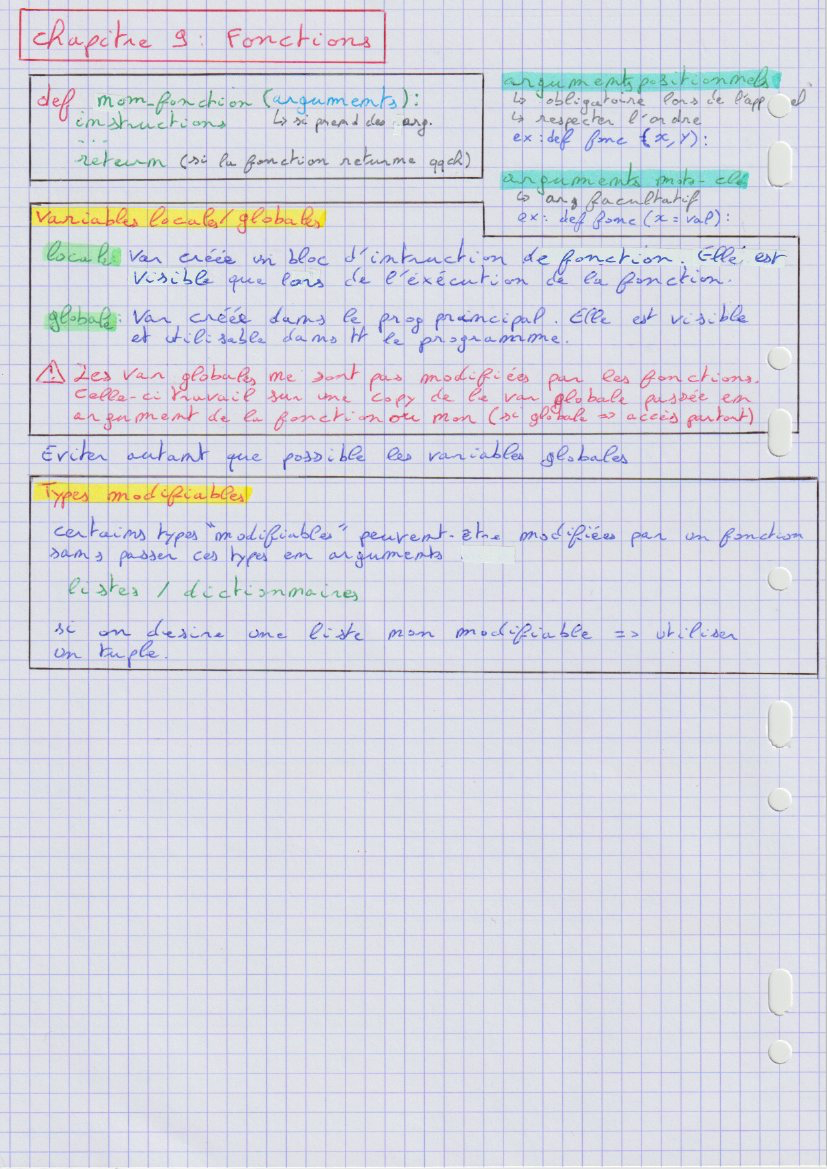 Chapitre 9 : Fonctions
def nom-fonction (arguments):
instructions ↳ si prend des arg.
...
return (si la fonction returne qqch)
arguments positionnels
↳ obligatoire lors de l'appel
↳ respecter l'ordre
ex : def fonc (x, Y) :
arguments mots-clé
↳ arg facultatif
ex : def fonc (x = val) :
Variables locales / globales
locale : Var créée un bloc d'intruction de fonction. Elle est
visible que lors de l'éxécution de la fonction.
globale : Var créée dans le prog principal. Elle est visible
et utilisable dans tt le programme.
⚠ Les var globales ne sont pas modifiées par les fonctions.
Celle-ci travail sur une copy de le var globale passée en
argument de la fonction ou non (si globale => accès partout)
Eviter autant que possible les variables globales
Types modifiables
certains types "modifiables" peuvent-être modifiées par un fonction
sans passer ces types en arguments.
listes / dictionnaires
si on desire une liste non modifiable => utiliser
un tuple.